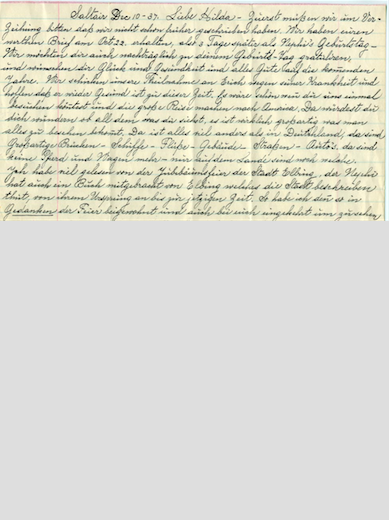 Saltair Dec 10-37. Liebe Hilda - Zuerst müßen wir um Ver-
zeihung bitten daß wir nicht schon früher geschrieben haben. Wir haben euren
werten Brief am Oct. 22. erhalten, also 3 Tage später als Nephi's Geburtstag -
Wir möchten dir auch nachträglich zu deinem Geburts-Tag gratuliren
und wünschen dir Glück und Gesundheit und alles Gute auf die kommenden
Jahre. Wir schicken unsere Theilnahme an Erich wegen seiner Krankheit und
hoffen daß er wieder Gesund ist zu dieser Zeit. Es wäre schön wen dir uns einmal
besuchen köntest und die große Reise machen nach America. Da würdest du
dich wundern ob all dem was du siehst, es ist wirklich großartig was man
alles zu besehen bekomt. Da ist alles viel anders als in Deutschland, da sind
Großartige Brücken - Schiffe - Flüße - Gebäude - Straßen - Auto's, da sind
keine Pferd und Wagen mehr - nur auf dem Lande sind noch welche.
Ich habe viel gelesen von der Jubiläumsfeier der Stadt Elbing, der Nephi
hat auch ein Buch mitgebracht von Elbing welches die Stadt beschreiben
thut, von ihrem Ursprung an bis zur jetzigen Zeit. So habe ich den so in
Gedanken der Feier beigewohnt und auch bei euch eingekehrt um zu sehen